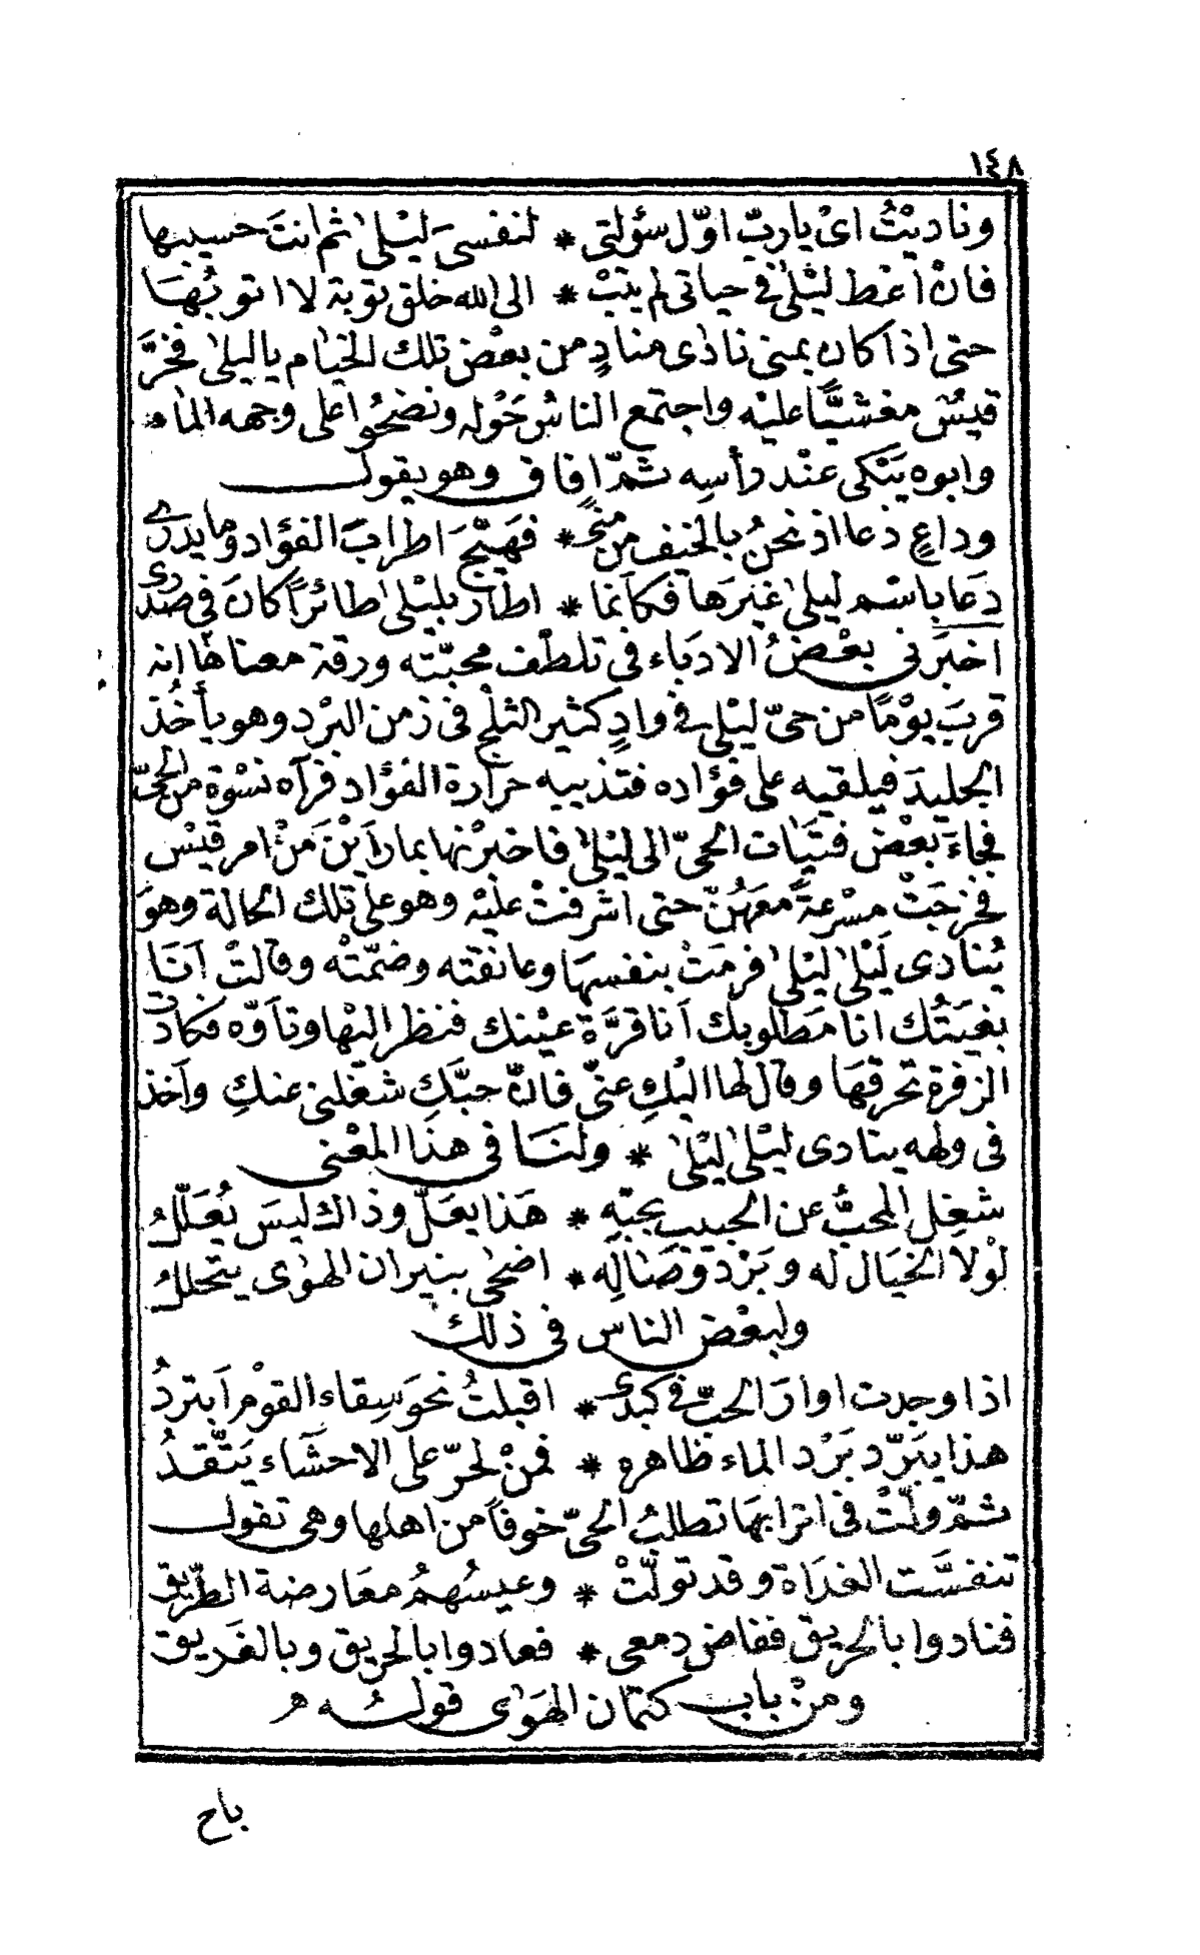 ١٤٨
وناديْتُ اىْ ياربّ اوّل سؤلتى * لنفسىَ ليْلىٰ ثم انتَ حسيبها
فانْ اعْط ليْلىٰ فى حياتى لم يتبْ * الى الله خلق توبة لا اتوبُهَا
حتى اذا كان بمنى نادٰى منادٍ من بعْض تلك الخيام يا ليلىٰ فخرَّ
قيسٌ مغشيًّا عليْه واجتمع الناسُ حَوْله ونضحُوا على وجهه الماء
وابوه يَبْكى عنْد رأسِه ثمّ افاق وهو يقول
وداعٍ دعا اذ نحنُ بالخيف من منىً * فهيّجَ اطرابَ الفؤاد وما يدرى
دَعا باسْم ليلىٰ غيْرَها فكأنما * اطار بليْلىٰ طائرًا كانَ فى صدْرى
اخبَرنى بعْضُ الادبَاء فى تلطّف محبّته ورقة معناها انه
قربَ يوْمًا من حىّ ليْلى فى وادٍ كثير الثلْج فى زمن البرْد وهو يأخُذ
الجليدَ فيلقيه على فؤاده فتذيبه حرارة الفؤاد فرآه نسْوة من الحىّ
فجاءَ بعْض فتيَات الحىّ الى ليْلىٰ فاخبرْنها بما رأيْنَ مَنْ امر قيْس
فخرجَتْ مسْرعةً معَهُنّ حتى اشرفتْ عليْه وهو على تلك الحالة وهوَ
يُنادى لَيْلىٰ ليْلىٰ فرمَتْ بنفسهَا وعانقته وضمّتْه وقالتْ اَنَا
بغيَتُك انا مَطلوبك اَنا قرَّة عيْنك فنظر اليْها وتأوّه فكادت
الزفرة تحرقهَا وقال لها اليْكِ عنّى فانّ حبَّكِ شغلنى عنكِ وأخذ
فى ولهه ينادى ليْلىٰ ليْلىٰ * ولنَا فى هذا المعْنى
شغِل المحبُّ عن الحبيب بحبّهِ * هَذا يعَلّ وذاك ليسَ يُعَلّلُ
لوْلا الخيَال له وبَرْد وصَالِه * اضحٰى بنيران الهوٰى يتحللُ
ولبعْض الناس فى ذلك
اذا وجدت اوارَ الحبّ فى كبدى * اقبلتُ نحوَ سِقاء القوْم اَبتردُ
هذا يبَرّد بَرْد الماء ظاهره * فمنْ لحرّ على الاحشَاء يَتّقدُ
ثمّ ولّتْ فى اترابهَا تطلبُ الحىّ خوفاً من اهلها وهى تقول
تنفسَّت الغدَاة وقد تولّتْ * وعيسُهمُ معَارضة الطّريق
فنادوا بالحريق ففاض دمعى * فعادوا بالحريق وبالغَريق
ومنْ باب كتمان الهَوٰى قولُه
باح